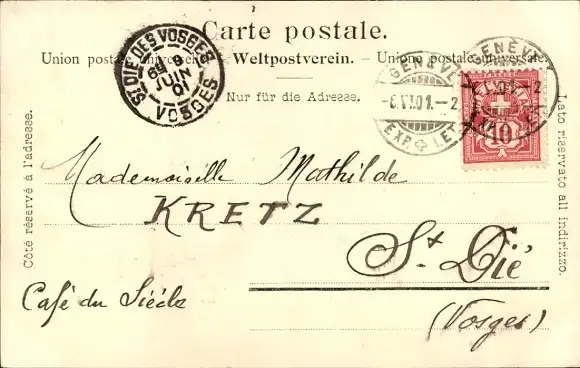 Carte postale.
Union postale universelle. - Weltpostverein. - Unione postale universale.
Nur für die Adresse.
ST DIÉ DES VOSGES
8
JUIN
01
VOSGES
GENÈVE
-6.VI.01.-2
EXP. LETT.
GENÈVE
VI.01.-2
EXP. LETT.
10
Côté réservé à l'adresse.
Lato riservato all indirizzo.
Mademoiselle Mathilde
KRETZ
St Dié
Café du Siécle
(Vosges)